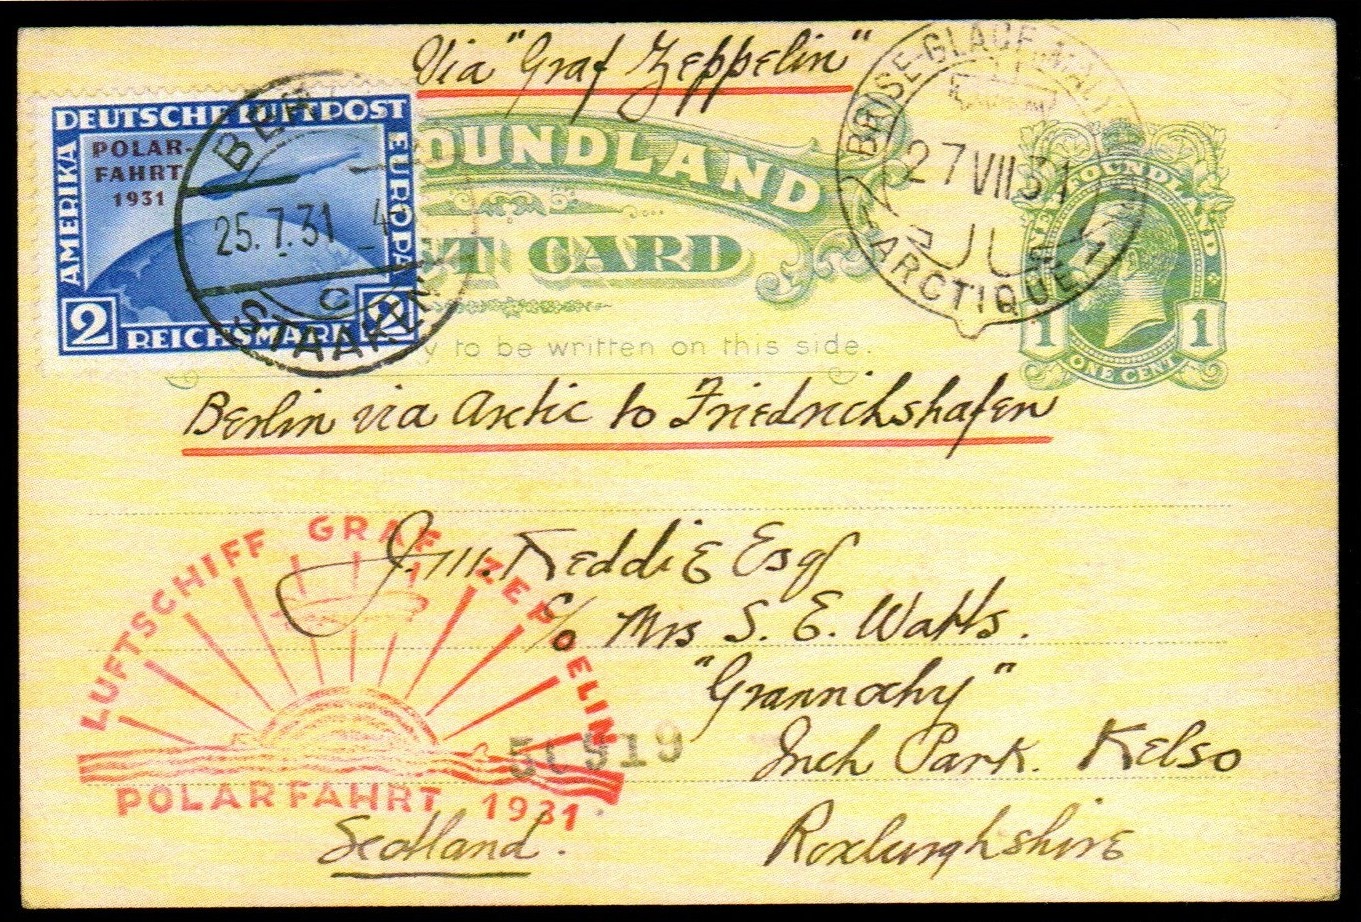 Via "Graf Zeppelin"
DEUTSCHE LUFTPOST
AMERIKA
EUROPA
POLAR-
FAHRT
1931
2 REICHSMARK 2
BER
25.7.31 4
C
STAAKEN
OUNDLAND
ST CARD
y to be written on this side.
BRISE-GLACE MALY
27 VII 31
ARCTIQUE
ONE CENT
1 1
Berlin via Arctic to Friedrichshafen
LUFTSCHIFF GRAF ZEPPELIN
POLARFAHRT 1931
J. M. Keddie Esq
c/o Mrs S. E. Watts.
"Grannochy"
Inch Park. Kelso
Roxburghshire
Scotland.